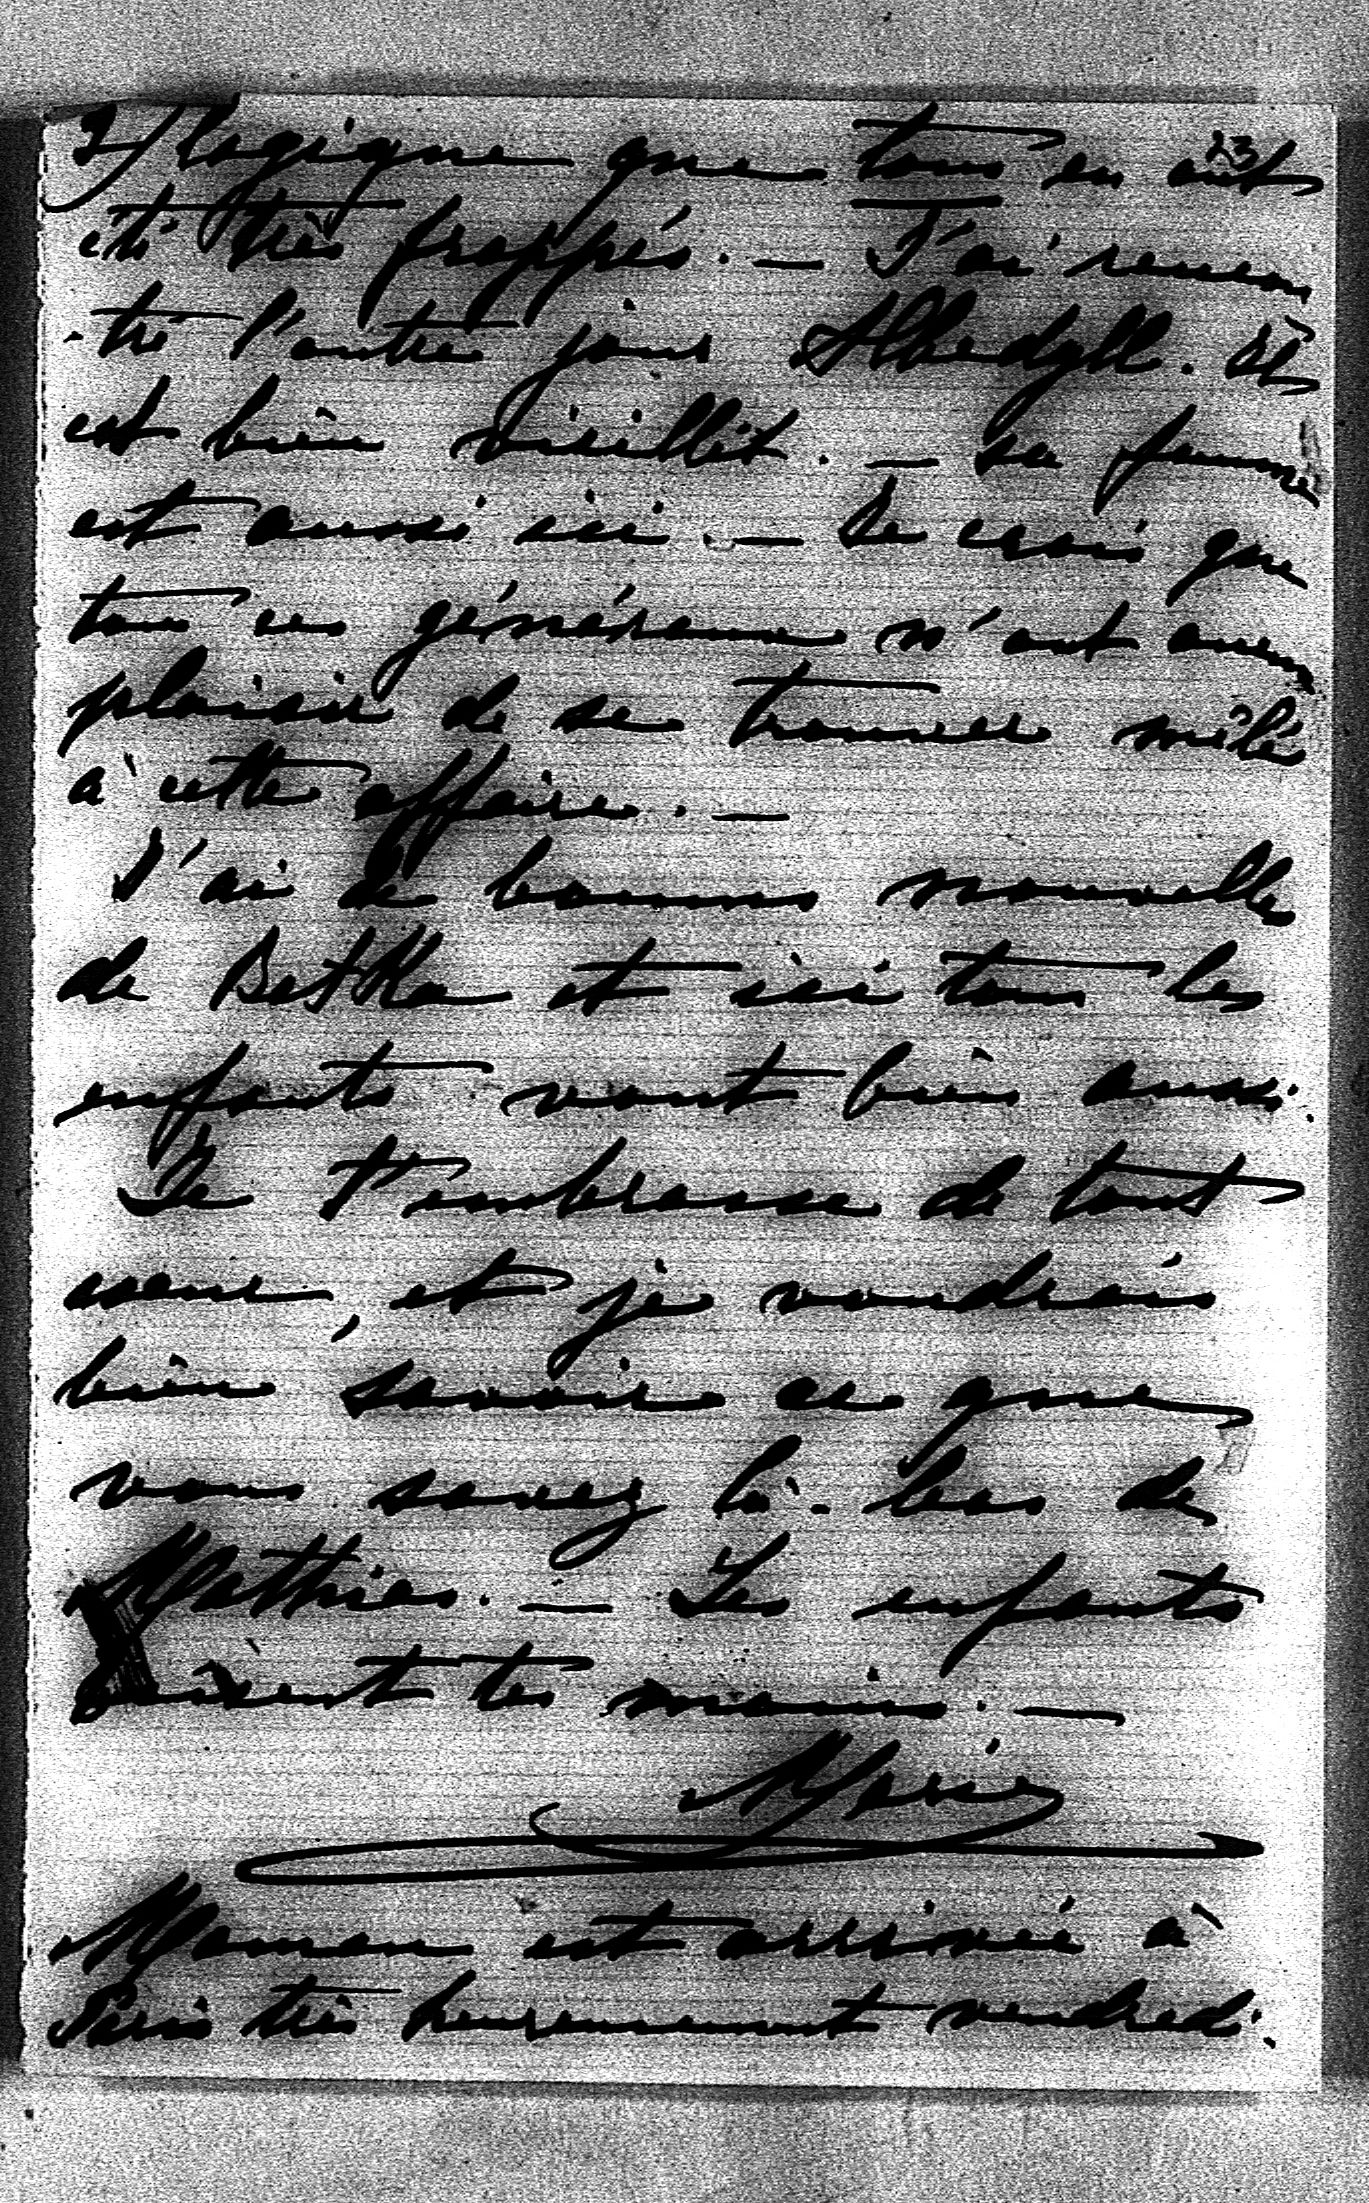 2/ logique que tous en ont
23
été très frappés. — J'ai rencon
-tré l'autre jour Albedyll. Il
est bien vieillit. — sa femme
est aussi ici. — Je crois que
tous ces généraux n'ont aucun
plaisir de se trouver mêlés
à cette affaire. —
J'ai de bonnes nouvelles
de Betka et ici tous les
enfants vont bien aussi.
Je t'embrasse de tout
cœur, et je voudrais
bien savoir ce que
vous savez là-bas de
Mathias. — Les enfants
baisent tes mains. —
Marie
Maman est arrivée à
Paris très heureusement vendredi.